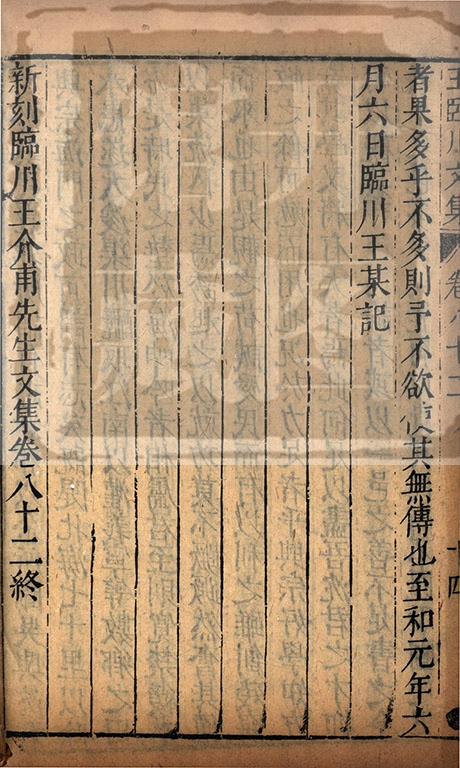 王臨川文集 卷八十二 十四
者果多乎不多則予不欲使其無傳也至和元年六
月六日臨川王某記
新刻臨川王介甫先生文集卷八十二終